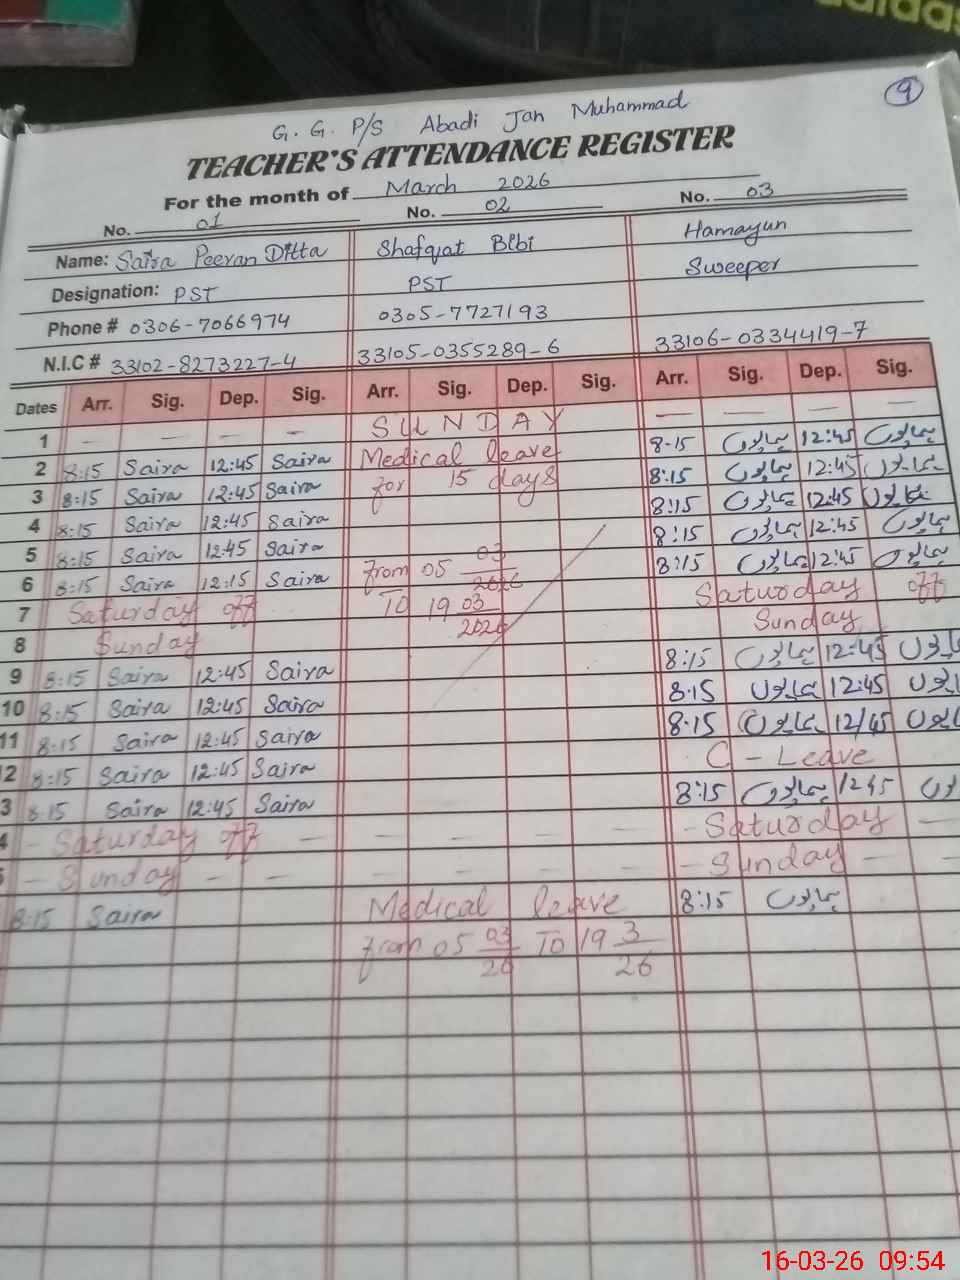 adidas
9
G. G. P/S Abadi Jan Muhammad
TEACHER'S ATTENDANCE REGISTER
For the month of March 2026
No. 01 No. 02 No. 03
Name: Saira Peeran Ditta Shafqat Bibi Hamayun
Designation: PST PST Sweeper
Phone # 0306-7066974 0305-7727193
N.I.C # 33102-8273227-4 33105-0355289-6 33106-0334419-7
Dates Arr. Sig. Dep. Sig. Arr. Sig. Dep. Sig. Arr. Sig. Dep. Sig.
1 — — — — SUNDAY — — — —
2 8:15 Saira 12:45 Saira Medical leave 8:15 ہمایوں 12:45 ہمایوں
3 8:15 Saira 12:45 Saira for 15 days 8:15 ہمایوں 12:45 ہمایوں
4 8:15 Saira 12:45 Saira 8:15 ہمایوں 12:45 ہمایوں
5 8:15 Saira 12:45 Saira From 05 03/2026 8:15 ہمایوں 12:45 ہمایوں
6 8:15 Saira 12:15 Saira TO 19 03/2026 8:15 ہمایوں 12:45 ہمایوں
7 Saturday off Saturday off
8 Sunday Sunday
9 8:15 Saira 12:45 Saira 8:15 ہمایوں 12:45 ہمایوں
10 8:15 Saira 12:45 Saira 8.15 ہمایوں 12:45 ہمایوں
11 8:15 Saira 12:45 Saira 8.15 ہمایوں 12/45 ہمایوں
2 8:15 Saira 12:45 Saira C - Leave
3 8:15 Saira 12:45 Saira 8:15 ہمایوں 12:45
4 - Saturday off — — — — — - Saturday —
5 - Sunday - - — — — — - Sunday — —
8:15 Saira Medical leave 8:15 ہمایوں
from 05 03/26 TO 19 3/26
16-03-26 09:54